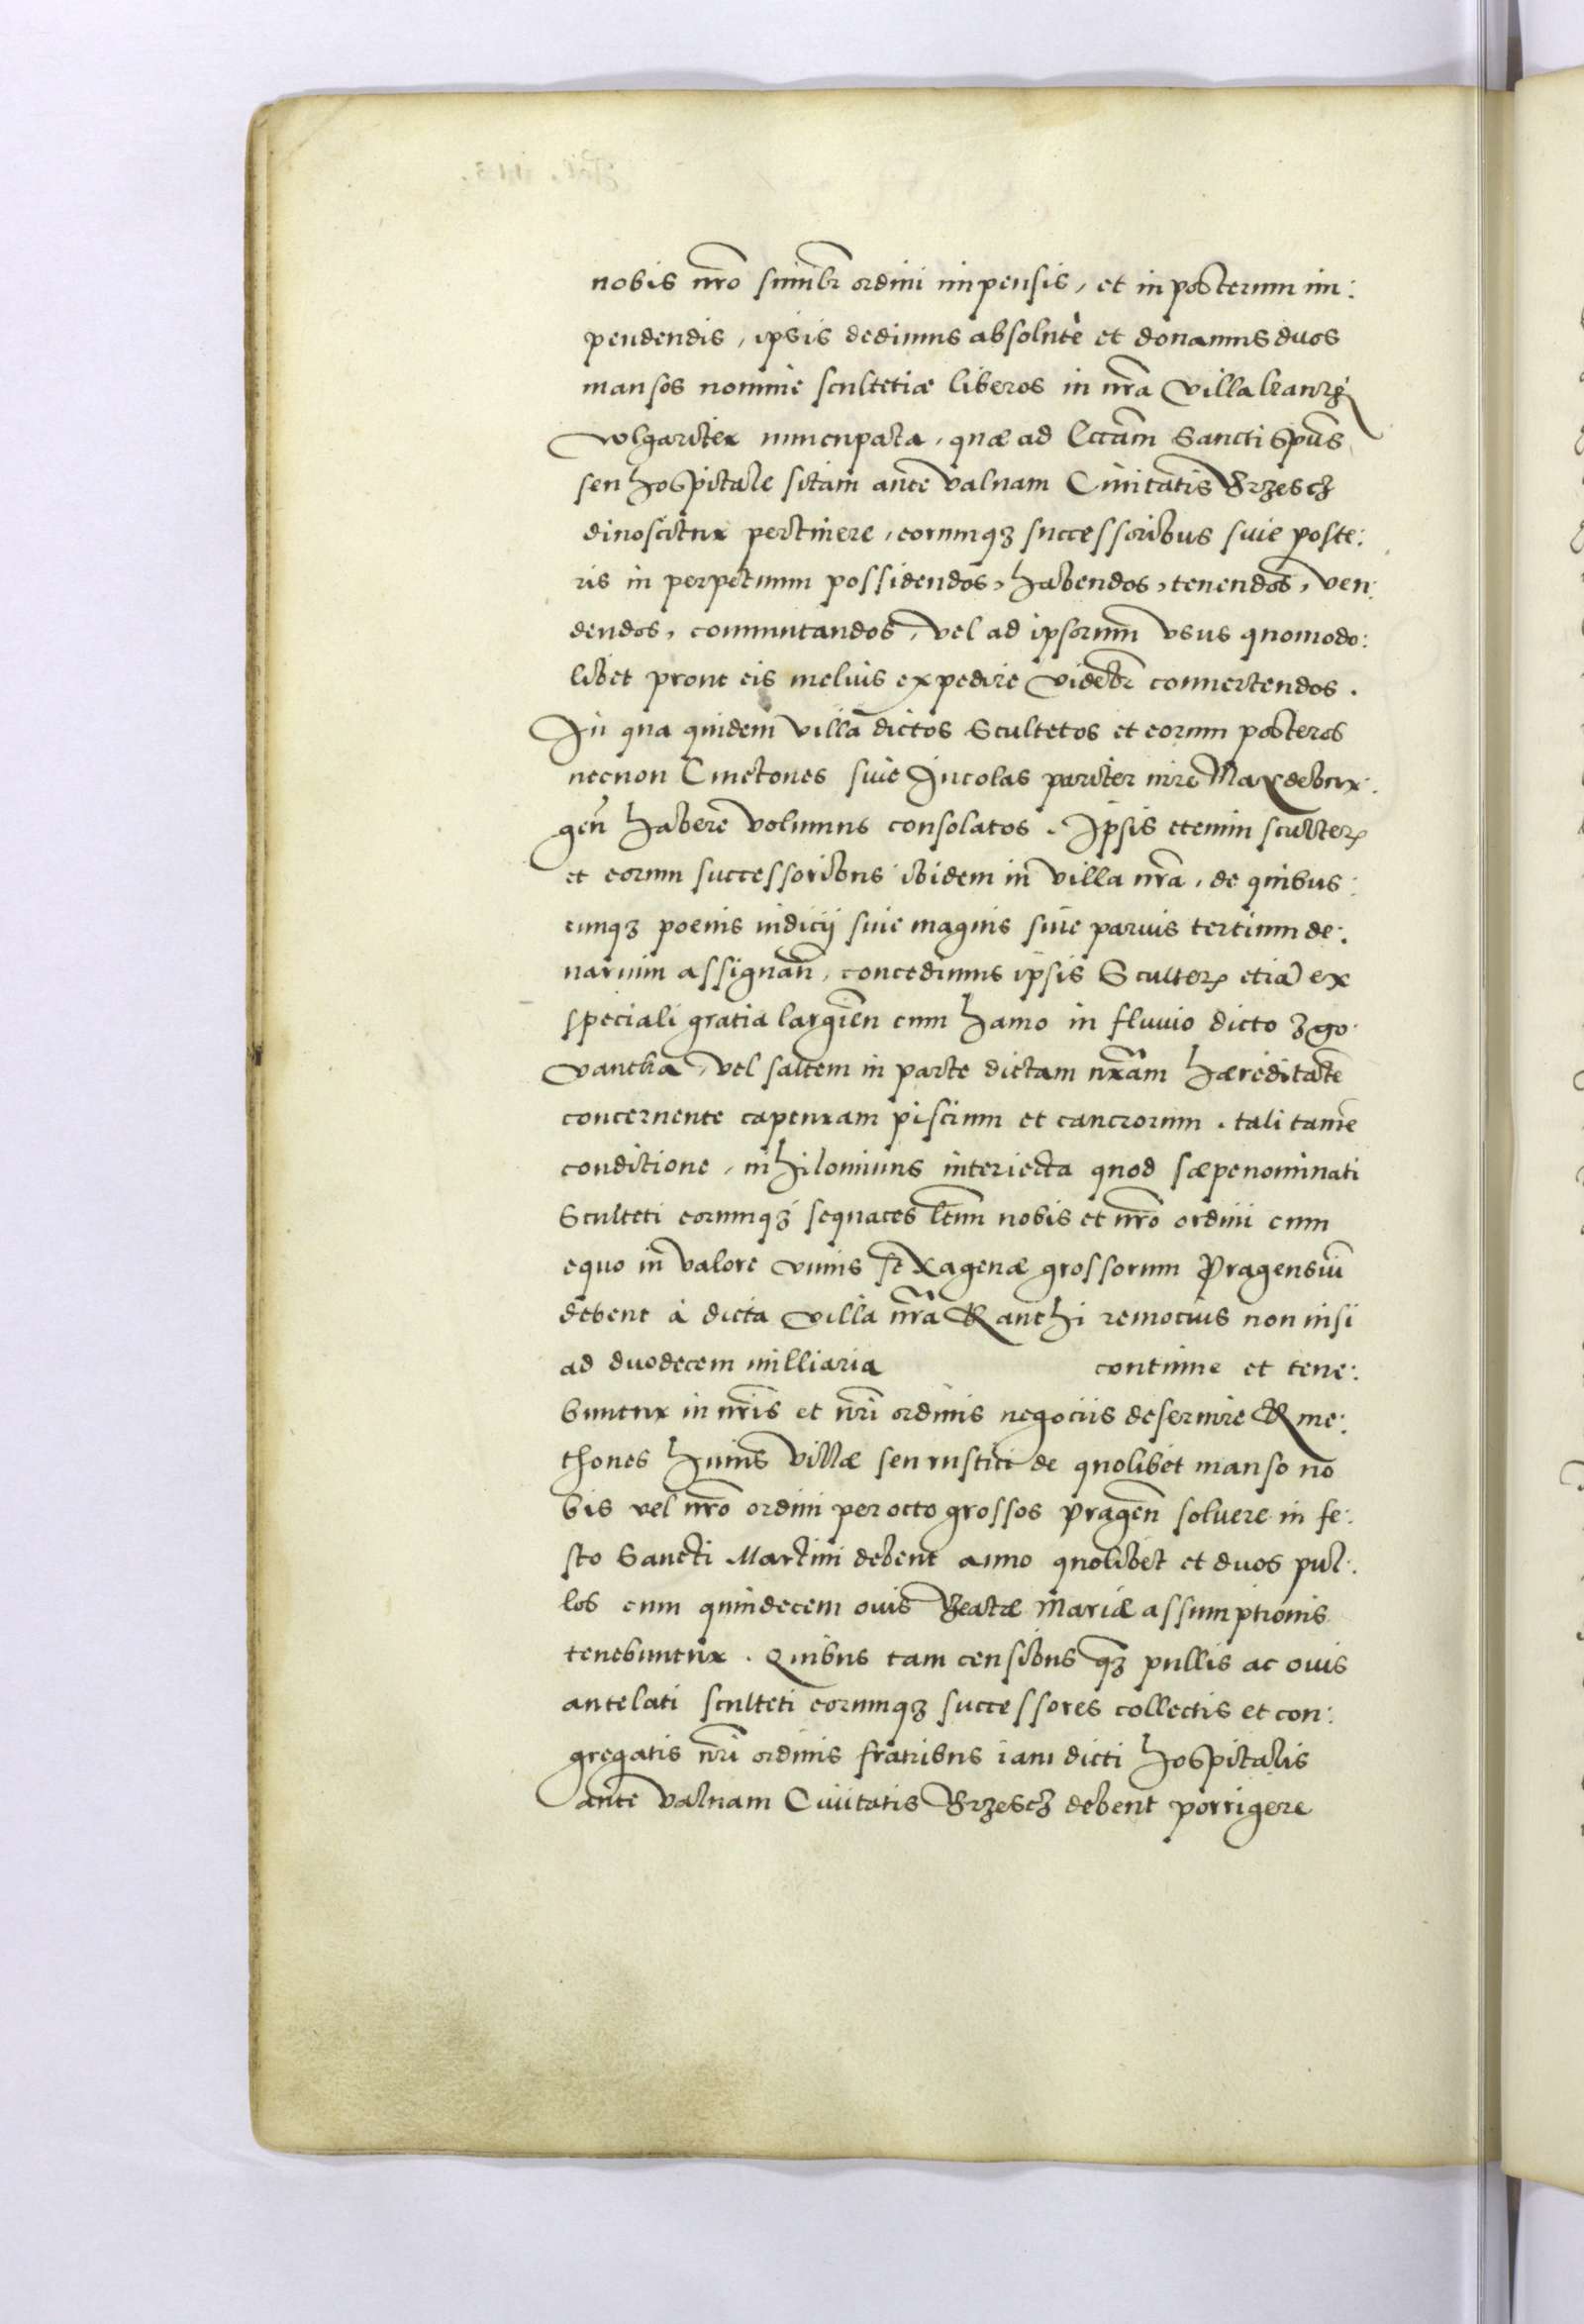 nobis nr̃o similr̃ ordini impensis, et in posterum im:
pendendis, ipsis dedimus absolutè et donamus duos
mansos nomine scultetiæ liberos in nr̃a Villa
volgariter nuncupata, quæ ad Ecc̃am Sancti Spũs
seu hospitale sitam ante valuam Ciuitatis Brzescz
dinoscitur pertinere, eorumqꝫ successoribus siue poste:
ris in perpetuum possidendos, habendos, tenendos, ven:
dendos, commutandos, vel ad ipsorum vsus quomodo:
libet prout eis melius expedire videbr̃ conuertendos.
In qua quidem villa dictos Scultetos et eorum posteros
necnon Cmetones siue Incolas pariter iure Maydebur:
geñ habere volumus consolatos. Ipsis etenim scultet
et eorum successoribus ibidem in villa nr̃a, de quibus:
cunqꝫ poenis iudicij siue magnis siue paruis tertium de:
narium assignañ, concedimus ipsis Scultet etiã ex
speciali gratia largieñ cum hamo in fluuio dicto Zgo
vantka, vel saltem in parte dictam nr̃am hæreditatẽ
concernente capturam piscium et cancrorum. tali tamẽ
conditione, nihilominus interiecta quod sæpenominati
Sculteti eorumqꝫ sequaces tm̃ nobis et nr̃o ordini cum
equo in valore vnius sexagenæ grossorum Pragensiũ
debent à dicta villa nr̃a Kanthi remotius non nisi
ad duodecem milliaria continue et tene:
buntur in nr̃is et nr̃i ordinis negociis deseruire Kme:
thones huius villæ seu rustici de quolibet manso no
bis vel nr̃o ordini per octo grossos prageñ soluere in fe:
sto Sancti Martini debent anno quolibet et duos pul:
los cum quindecem ouis Beatæ Mariæ assumptionis
tenebuntur. Quibus tam censibus qꝫ pullis ac ouis
antelati sculteti eorumqꝫ successores collectis et con:
gregatis nr̃i ordinis fratribus iam dicti hospitalis
ante valuam Ciuitatis Brzescz debent porrigere